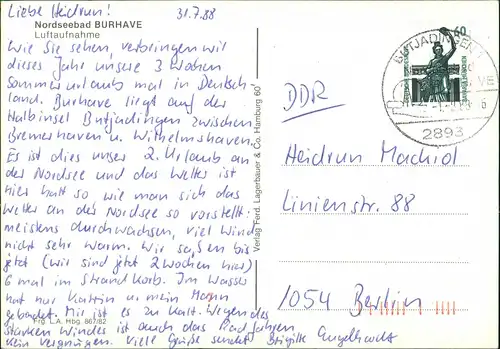 Liebe Heidrun! 31.7.88
Nordseebad BURHAVE
Luftaufnahme
Wie Sie sehen, verbringen wir
dieses Jahr unsere 3 Wochen
Sommerurlaub mal in Deutsch-
land. Burhave liegt auf der
Halbinsel Butjadingen zwischen
Bremerhaven u. Wilhelmshaven.
Es ist dies unser 2. Urlaub an
der Nordsee und das Wetter ist
hier halt so wie man sich das
Wetter an der Nordsee so vorstellt:
meistens durchwachsen, viel Wind
nicht sehr warm. Wir saßen bis
jetzt (wir sind jetzt 2 Wochen hier)
6 mal im Strandkorb. Im Wasser
hat nur Katrin u. mein Mann
gebadet. Mir ist es zu kalt. Wegen des
Frg. L.A. Hbg. 867/82
starken Windes ist auch das Radfahren
kein Vergnügen. Viele Grüße sendet Brigitte Engelhardt
Verlag Ferd. Lagerbauer & Co. Hamburg 60
60
BUTJADINGEN
2893
DDR
Heidrun Machol
Linienstr. 88
1054 Berlin